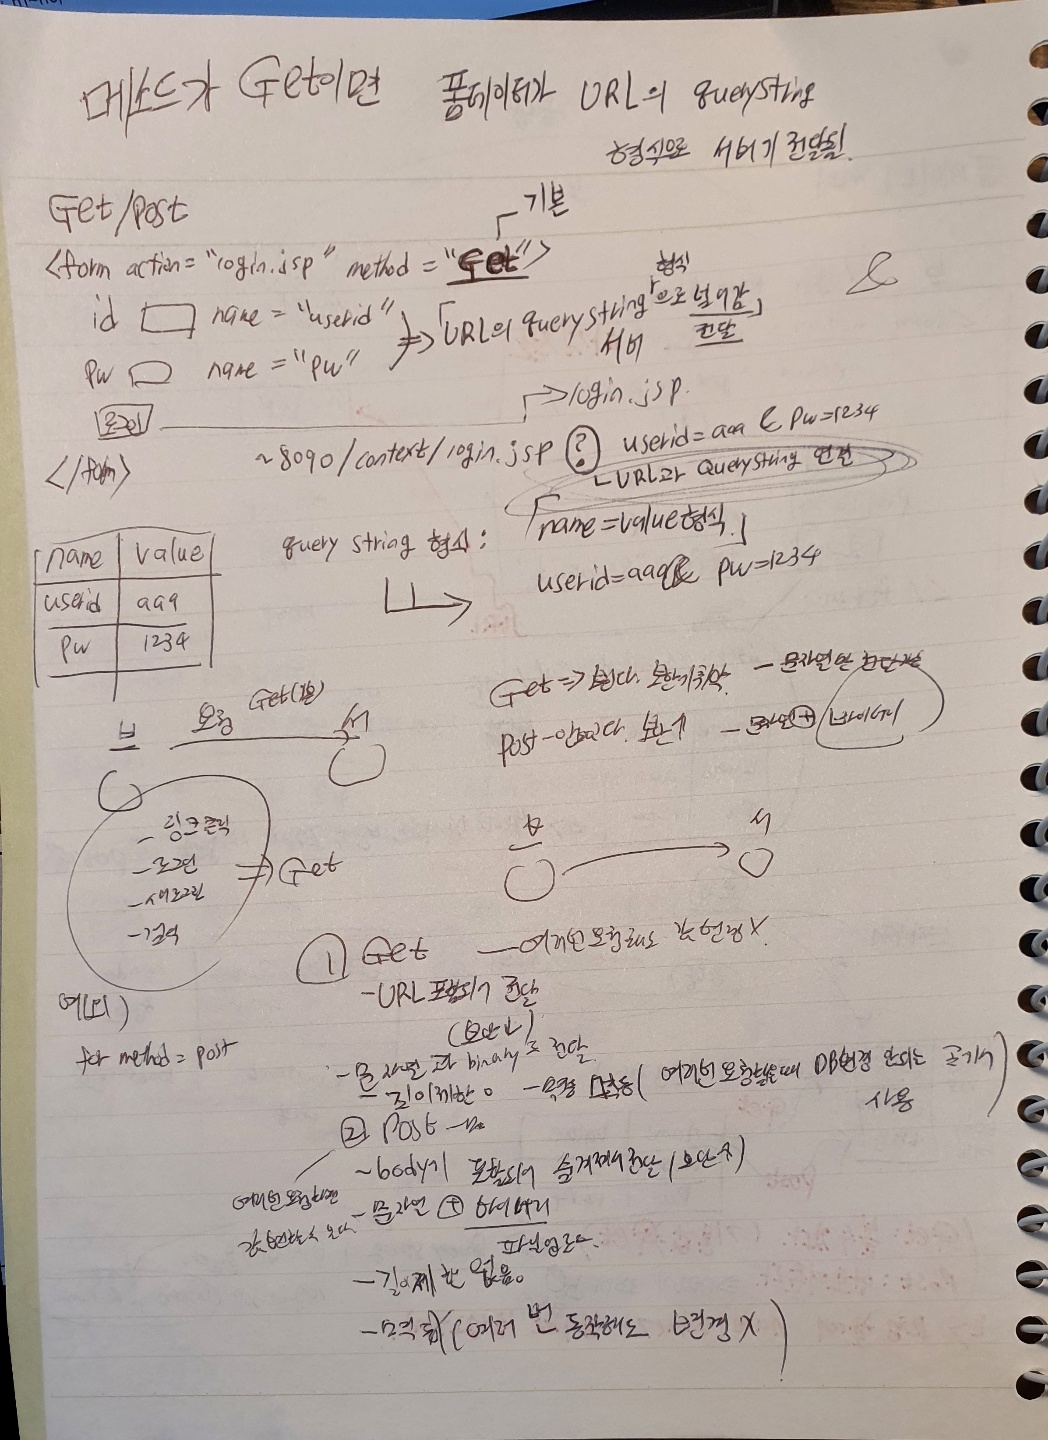 메소드가 Get이면 폼데이터가 URL의 querystring
형식으로 서버기 전달됨.
Get/Post
기본
<form action="login.jsp" method="Get">
id name="userid"
pw name="pw"
⇒ 「URL의 querystring 형식으로 넘어감」
서버 전달
로그인
login.jsp.
</form>
~8090/context/login.jsp ? userid=aaa & pw=1234
URL과 QueryString 연결
name value
userid aaa
pw 1234
query string 형식: 「name=value형식.」
userid=aaa& pw=1234
브 요청 Get(기본) 서
Get ⇒ 보인다. 보안기취약 - 문자열만
Post - 안보인다. 보안 - 문자열 + 바이너리
- 링크클릭
- 로그인
- 새로고침
- 검색
⇒ Get
브 서
① Get - 여러번 요청해도 값 변경X.
- URL 포함되기 전달
(보안↓)
- 문자열과 binary로 전달.
- 길이제한 o - 멱등 (여러번 요청했을때 DB변경 안되는 곳기서
사용)
예외)
for method = post
② Post
~body기 포함되어 숨겨져서 전달 (보안↑)
여러번 요청하면
- 문자열 + 바이너리
파일업로드.
- 길이제한 없음.
- (여러 번 동작해도 변경 X)